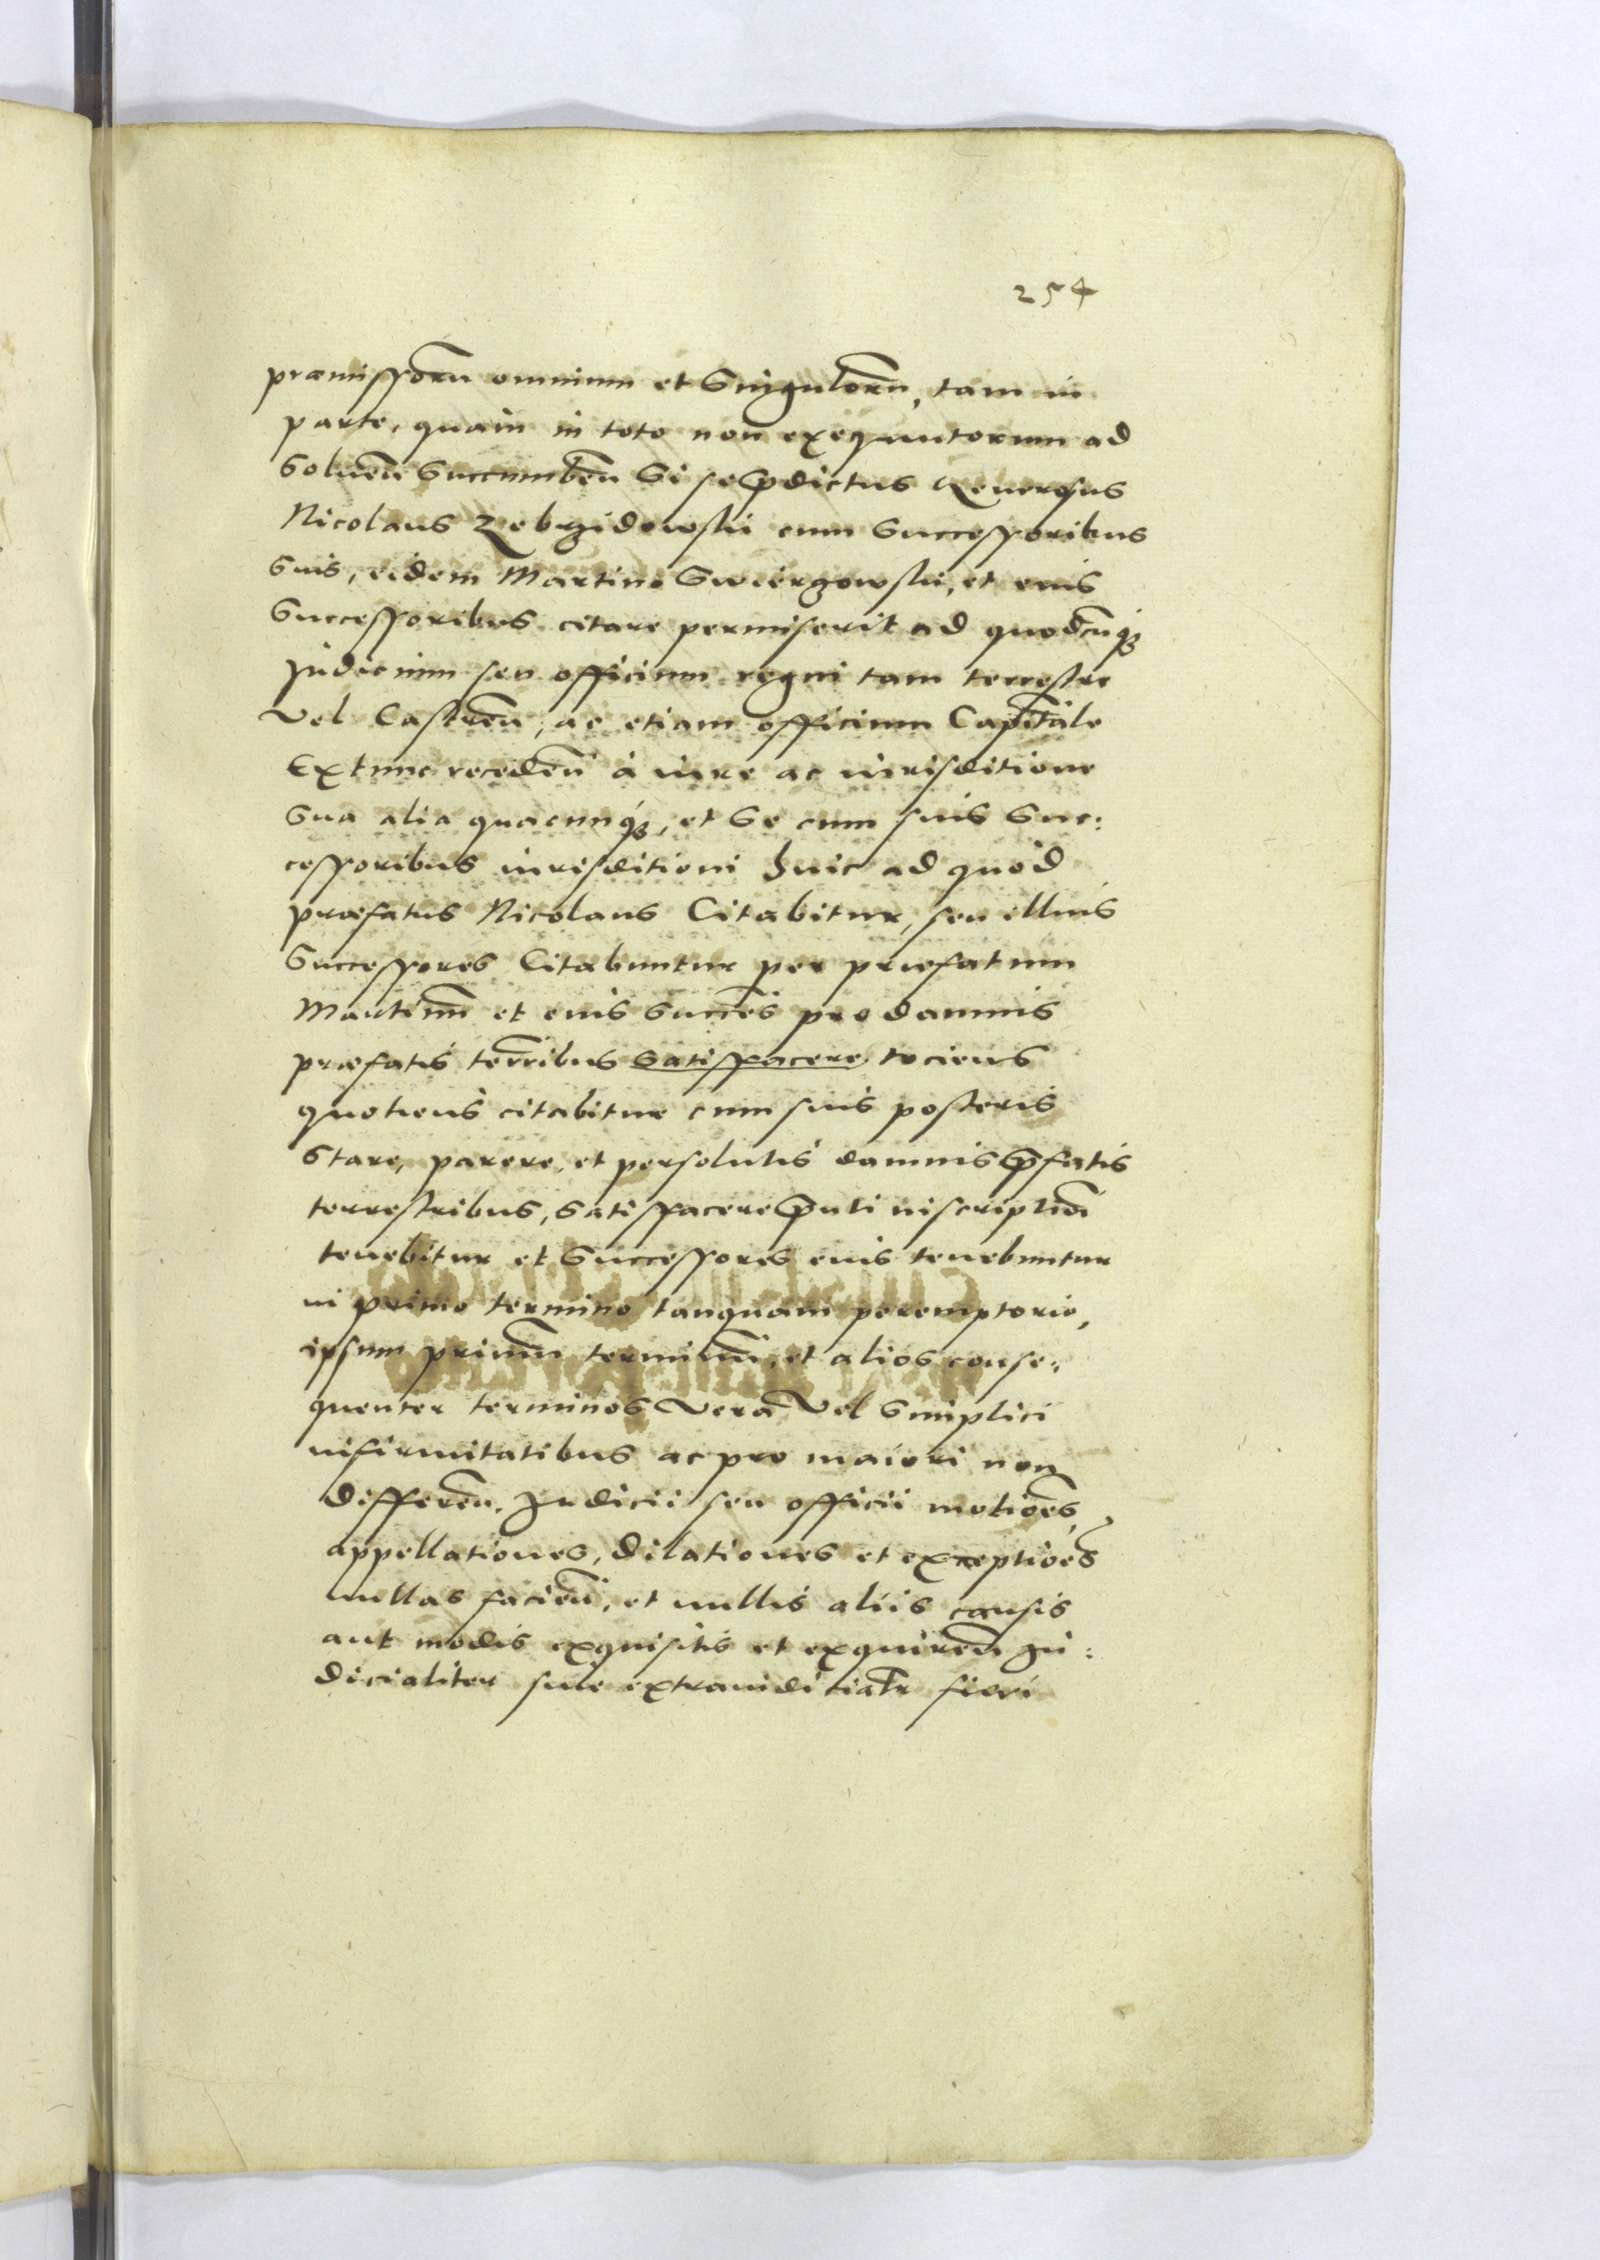 254
præmissorū omnium et Singulorū, tam in
parte, quam in toto non exequutorum ad
Soluēn Succumbēn Si sepdictus Generosus
Nicolaus Zebrzidowski cum Successoribus
Suis, eidem Martino Swiergowski, et eius
Successoribus citare permiserit ad quodcūq;
Judicium seu officium regni tam terrestre
Vel Castrēn, ac etiam officium Capitāle
Extunc recedēn à iure ac iurisditione
Sua alia quacunq;, et Se cum suis Suc:
cessoribus iurisditioni huic ad quod
præfatus Nicolaus Citabitur, seu illius
Successores Citabuntur per præfatum
Martinū et eius Succes̄ pro damnis
præfatis terr̄ibus satisfacere tociens
quotiens citabitur cum suis posteris
Stare, parere, et persolutis damnis p̄fatis
terrestribus, Satisfacere p̄nti inscriptiōi
tenebitur et Successores eius tenebuntur
in primo termino tanquam peremptorio,
ipsum primū terminū, et alios conse:
quenter terminos Vera Vel Simplici
infirmitatibus ac pro maiori non
differēn, Judicii seu officii motiōes,
appellationes, dilationes et exceptiōes
nullas faciēn, et nullis aliis causis
aut modis exquisitis et exquirēn Ju:
dicialiter siue extraiuditialr̄ fieri